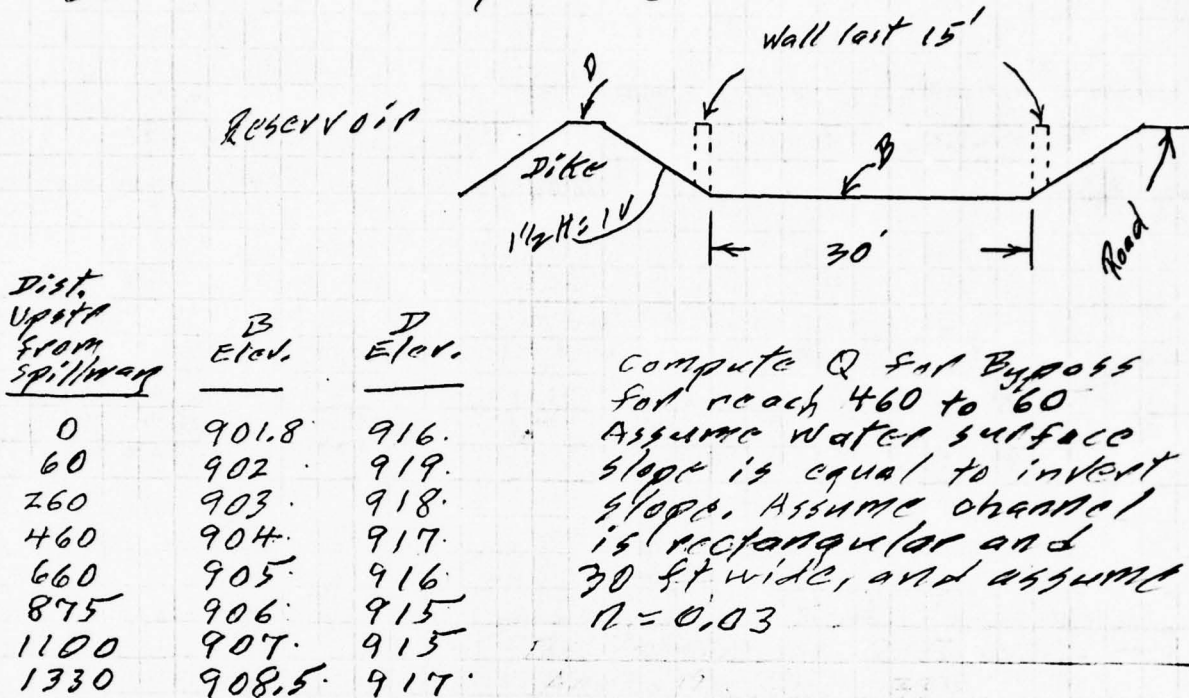 Wall last 15'
Reservoir
D
Dike
B
1 1/2 H : 1 V
30'
Road
Dist.
Upstr
from
Spillway
B
Elev.
D
Elev.
0 901.8 916.
60 902 919.
260 903. 918.
460 904. 917.
660 905. 916
875 906. 915
1100 907. 915
1330 908.5. 917.
Compute Q for Bypass
for reach 460 to 60
Assume water surface
slope is equal to invert
slope. Assume channel
is rectangular and
30 ft wide, and assume
n = 0.03